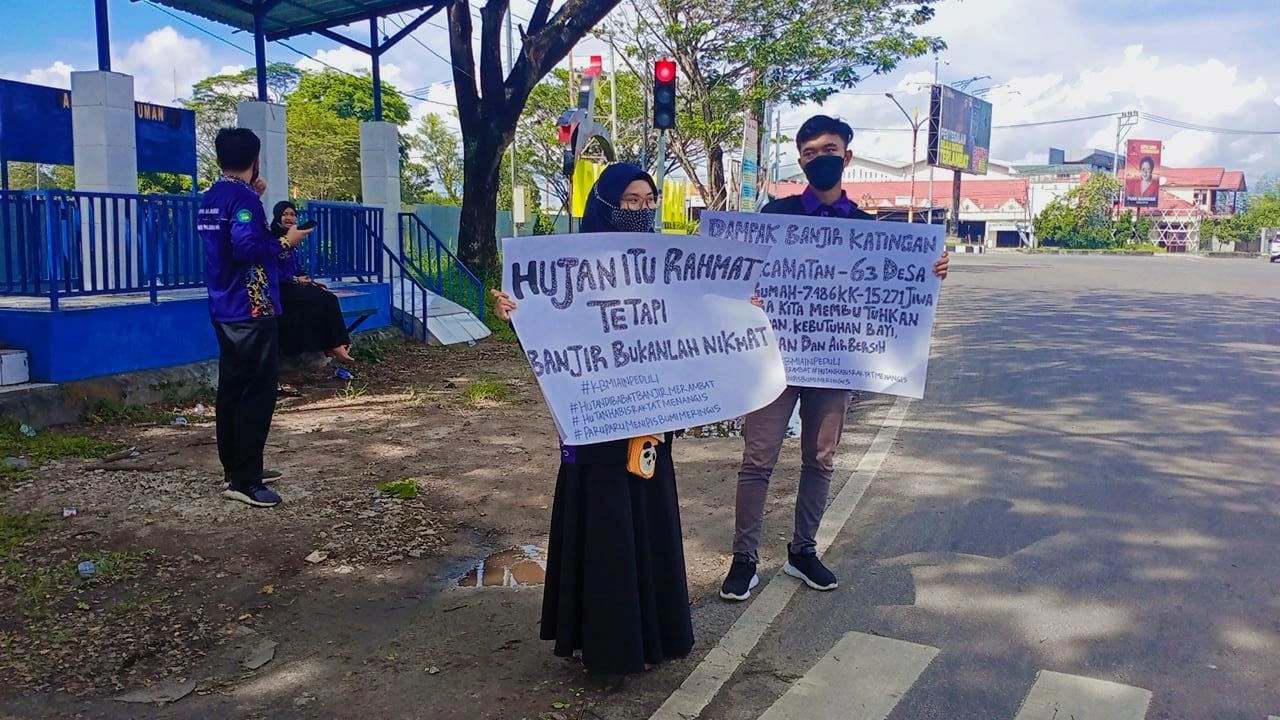 HUJAN ITU RAHMAT
TETAPI
BANJIR BUKANLAH NIKMAT
#KBMIAINPEDULI
#HUTANDIBABATBANJIRMERAMBAT
#HUTANHABISRAKYATMENANGIS
#PARUPARUMENIPISBUMIMERINGIS
DAMPAK BANJIR KATINGAN
CAMATAN-63 DESA
UMAH-7.486KK-15.271 JIWA
KITA MEMBUTUHKAN
AN, KEBUTUHAN BAYI,
AN DAN AIR BERSIH
KBMIAINPEDULI
ERAMBAT #HUTANHABISRAKYATMENANGIS
IPISBUMIMERINGIS
UMAN